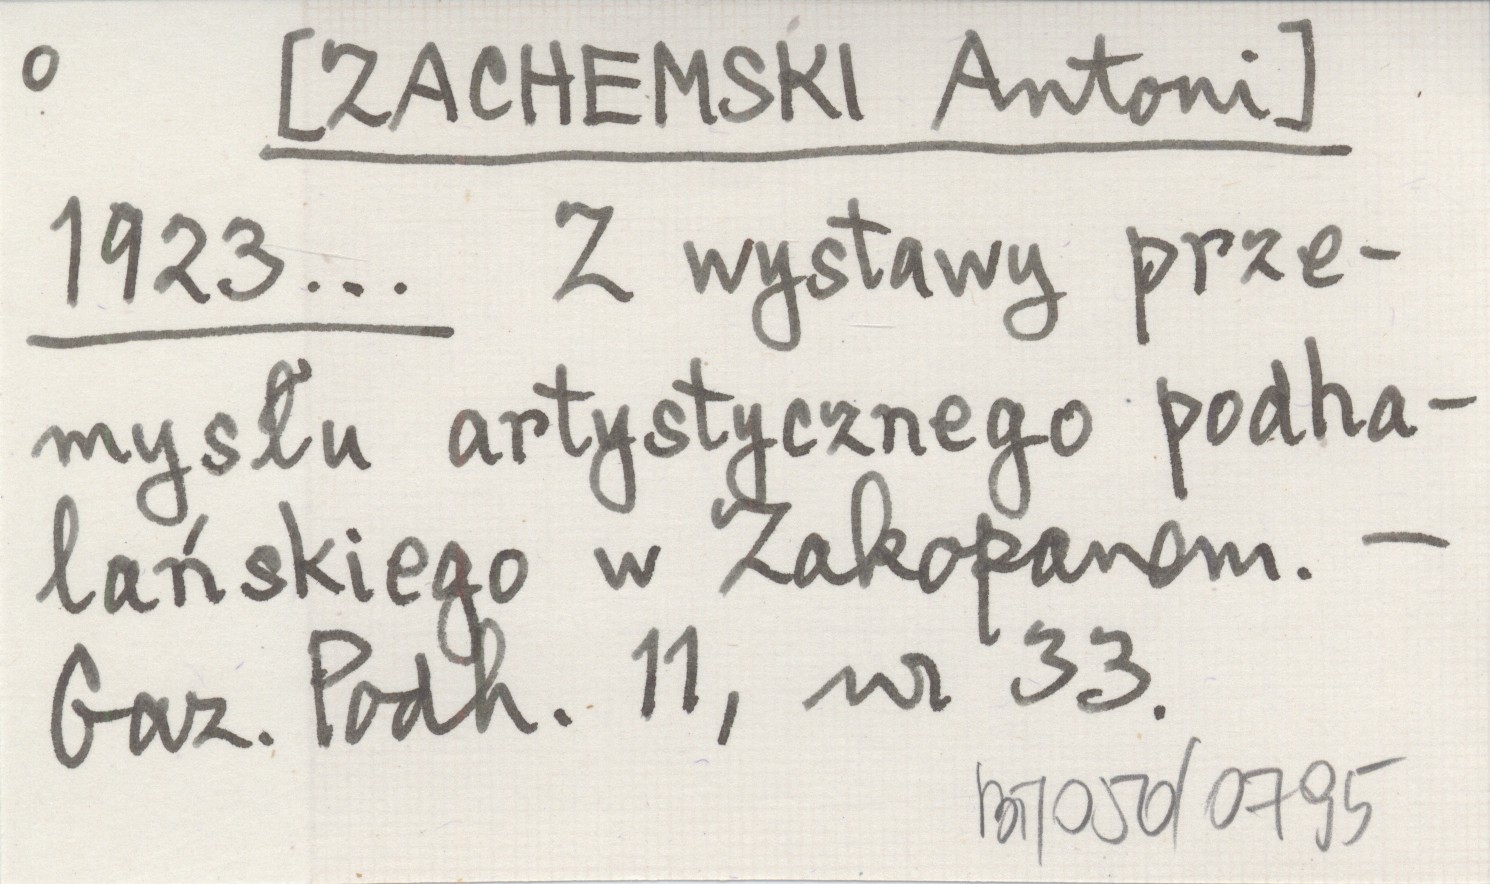 o [ZACHEMSKI Antoni]
1923... Z wystawy prze-
mysłu artystycznego podha-
lańskiego w Zakopanem. —
Gaz. Podh. 11, nr 33.
0795